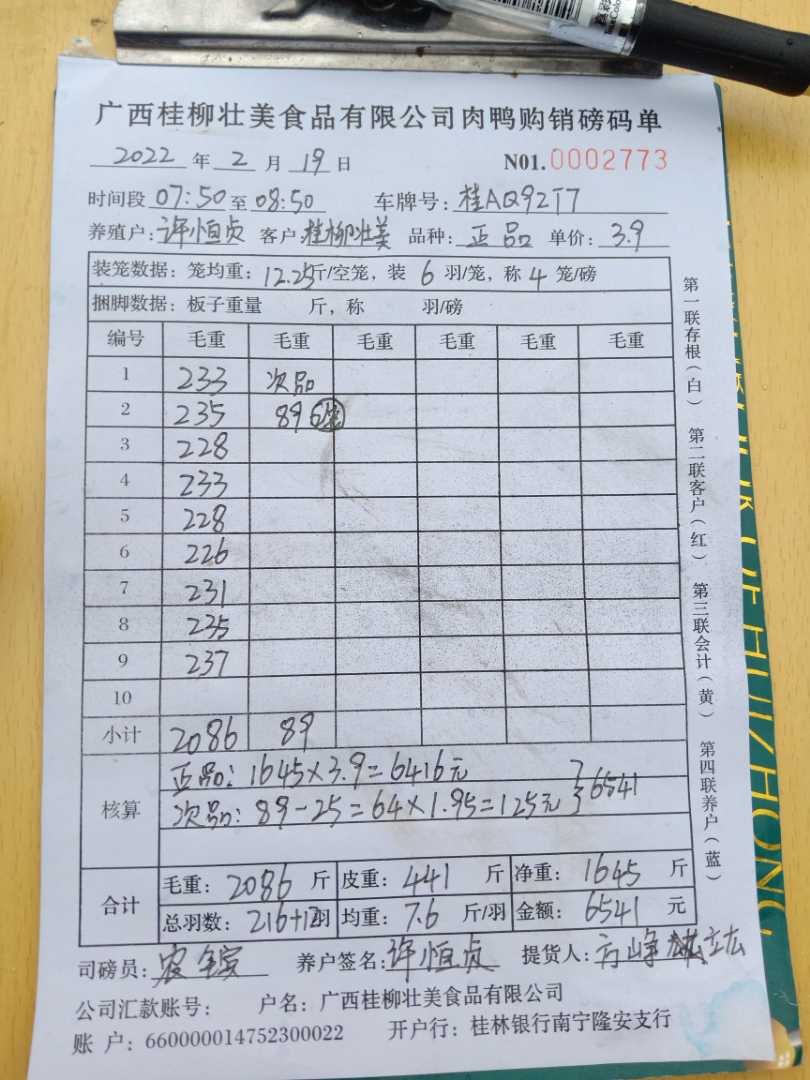 广西桂柳壮美食品有限公司肉鸭购销磅码单
2022 年 2 月 19 日 N01.0002773
时间段 07:50 至 08:50 车牌号: 桂AQ92T7
养殖户: 许恒贞 客户: 桂柳壮美 品种: 正品 单价: 3.9
装笼数据: 笼均重: 12.25斤/空笼, 装 6 羽/笼, 称 4 笼/磅
捆脚数据: 板子重量 斤, 称 羽/磅
编号 毛重 毛重 毛重 毛重 毛重 毛重
1 233 次品
2 235 89
3 228
4 233
5 228
6 226
7 231
8 235
9 237
10
小计 2086 89
核算 正品: 1645×3.9=6416元
次品: 89-25=64×1.95=125元 6541
合计 毛重: 2086 斤 皮重: 441 斤 净重: 1645 斤
总羽数: 216+12羽 均重: 7.6 斤/羽 金额: 6541 元
司磅员: 养户签名: 许恒贞 提货人:
公司汇款账号: 户名: 广西桂柳壮美食品有限公司
账 户: 660000014752300022 开户行: 桂林银行南宁隆安支行
第一联存根(白) 第二联客户(红) 第三联会计(黄) 第四联养户(蓝)